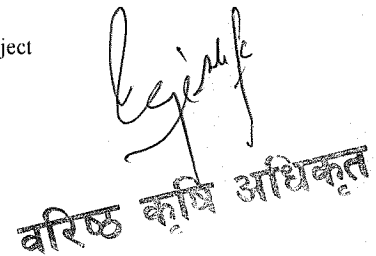 ject
वरिष्ठ कृषि अधिकृत